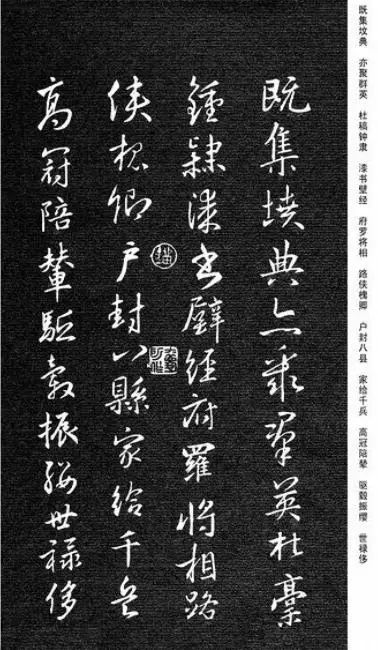 既集坟典 亦聚群英 杜稿钟隶 漆书壁经 府罗将相 路侠槐卿 户封八县 家给千兵 高冠陪辇 驱毂振缨 世禄侈
既集墳典亦聚羣英杜稾
鍾隸漆書壁經府羅將相路
俠槐卿户封八縣家給千兵
高冠陪輦駈轂振纓世禄侈